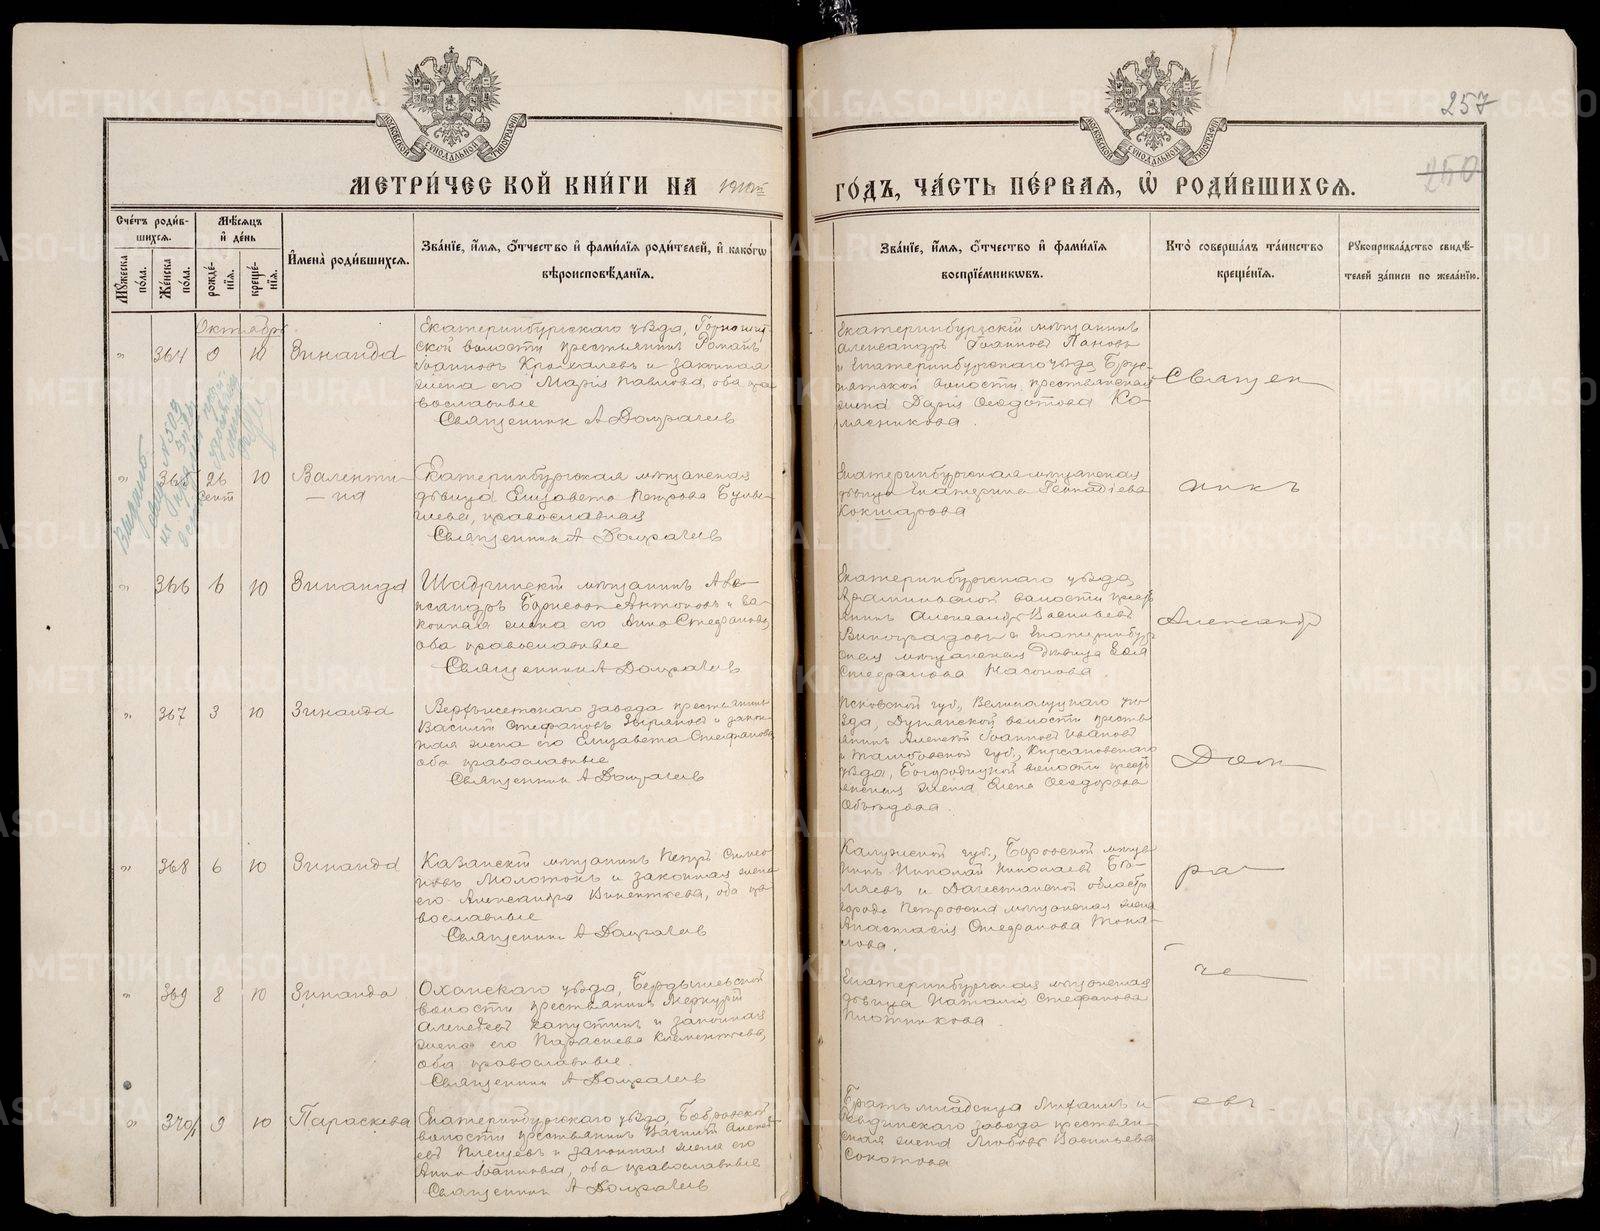 257
250
МЕТРИ́ЧЕСКОЙ КНИ́ГИ НА 1910й
ГО́ДЪ, ЧА́СТЬ ПЕ́РВАѦ, Ѡ҆ РОДИ́ВШИХСѦ.
Сче́тъ роди́в-
шихсѧ.
Мꙋ́жеска по́ла.
Же́нска по́ла.
Мѣ́сѧцъ и҆ де́нь
рожде́-нїѧ.
креще́-нїѧ.
И҆мена̀ роди́вшихсѧ.
Зва́нїе, и҆́мѧ, ѻ҆́тчество и҆ фами́лїѧ роди́телей, и҆ како́гѡ
вѣроисповѣ́данїѧ.
Зва́нїе, и҆́мѧ, ѻ҆́тчество и҆ фами́лїѧ
воспрїе́мникѡвъ.
Кто̀ соверша́лъ та́инство
креще́нїѧ.
Рꙋкоприкла́дство свидѣ́-
телей за́писи по жела́нїю.
Октябрь
" 364 9 10 Зинаида
Екатеринбургскаго уѣзда, Горнощит-
ской волости крестьянинъ Романъ
Іоанновъ и законная
жена его Марія Павлова, оба пра-
вославные
Священник А Домрачев
Екатеринбургскій мѣщанинъ
Александръ Іоанновъ Пановъ
и Екатеринбургскаго уѣзда, Брус-
нятской волости, крестьянская
жена Дарія Ѳеодотова Ко-
лясникова.
Священ
" 365 26 Сент 10 Валенти-
на
Екатеринбургская мѣщанская
дѣвица Елизавета Петрова Булы-
чева, православная
Священник А Домрачев
Екатеринбургская мѣщанская
дѣвица Екатерина Геннадіева
Кокшарова
никъ
" 366 6 10 Зинаида
Шадринскій мѣщанинъ Алек-
сандръ Борисовъ Антоновъ и за-
конная жена его Анна Стефанова,
оба православные
Священник А Домрачев
Екатеринбургскаго уѣзда,
Арамильской волости крест
янинъ Александръ Васильевъ
Виноградовъ и Екатеринбур
ская мѣщанская дѣвица
Стефанова Насонова
Александр
" 367 3 10 Зинаида
Верхъисетскаго завода крестьянинъ
Василій Стефановъ и закон-
ная жена его Елизавета Стефанова,
оба православные
Священник А Домрачев
Псковской губ., Великолуцкаго уѣ-
зда, волости кресть
янинъ Алексѣй Іоанновъ Ивановъ
и Тамбовской губ., Кирсановскаго
уѣзда, Богородицкой волости крест
янская жена Елена Ѳеодорова
Объѣдова.
Дом
" 368 6 10 Зинаида
Казанскій мѣщанинъ Петръ Симео
новъ Молотовъ и законная жена
его Александра Викентьева, оба пра
вославные
Священник А Домрачев
Калужской губ., Боровской мѣща
нинъ Николай Николаевъ
и Дагестанской области
города Петровска мѣщанская жена
Анастасія Стефанова
лова.
ра
" 369 8 10 Зинаида
Оханскаго уѣзда, Бердышевской
волости крестьянинъ Меркурій
Алексѣевъ Капустинъ и законная
жена его Параскева Климентьева,
оба православные.
Священник А Домрачев
Екатеринбургская мѣщанская
дѣвица Наталія Стефанова
Плотникова.
че
" 370 9 10 Параскева
Екатеринбургскаго уѣзда, Бобровской
волости крестьянинъ Василій Алексѣ-
евъ Плещевъ и законная жена его
Анна Іоаннова, оба православные
Священник А Домрачев
Братъ младенца Михаилъ и
завода крестьян-
ская жена Любовь Васильева
Сокотова
евъ
METRIKI.GASO-URAL.RU